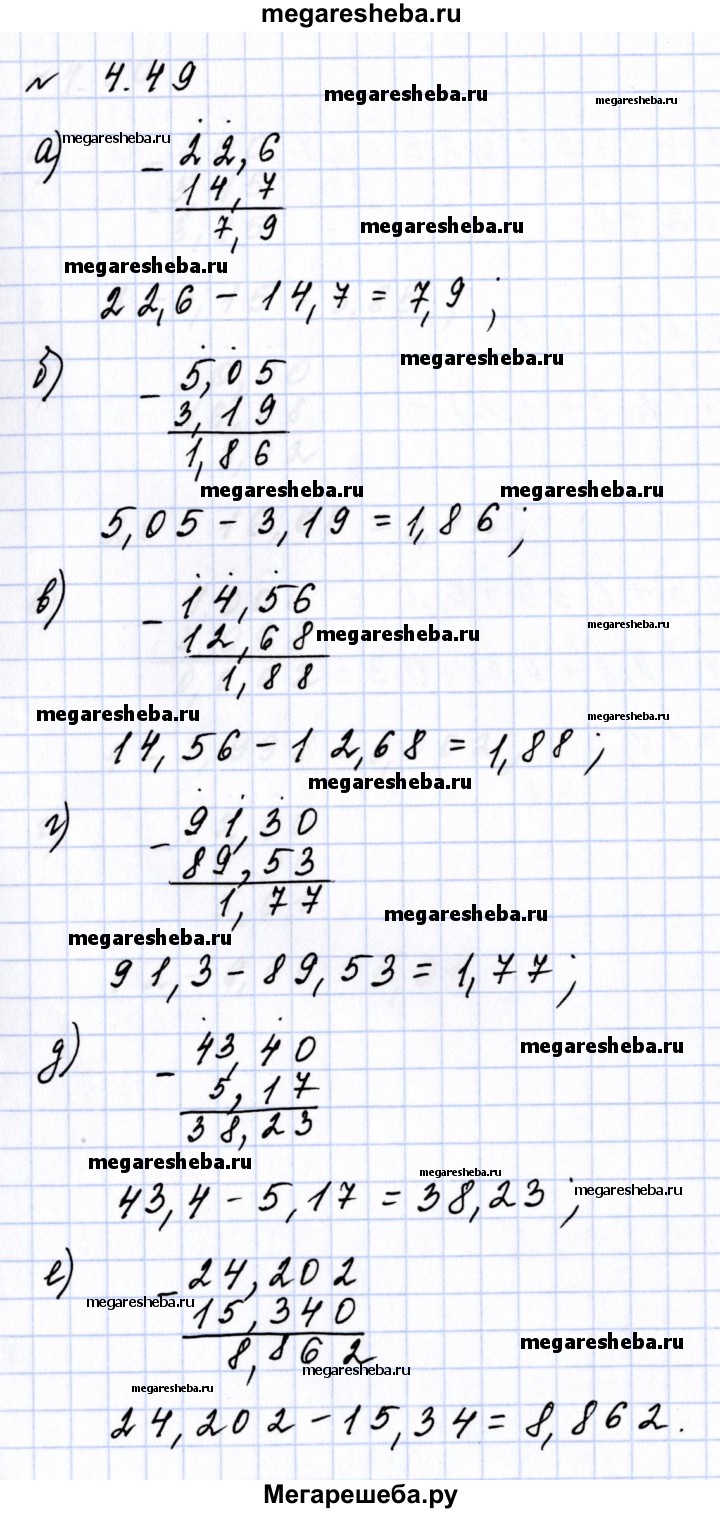 megaresheba.ru
№ 4.49
megaresheba.ru
megaresheba.ru
а) megaresheba.ru
- 22,6
14,7
7,9
megaresheba.ru
megaresheba.ru
22,6 - 14,7 = 7,9 ;
megaresheba.ru
б) - 5,05
3,19
1,86
megaresheba.ru megaresheba.ru
5,05 - 3,19 = 1,86 ;
в) - 14,56
12,68
megaresheba.ru megaresheba.ru
1,88
megaresheba.ru megaresheba.ru
14,56 - 12,68 = 1,88 ;
megaresheba.ru
г) - 91,30
89,53
1,77
megaresheba.ru
megaresheba.ru
91,3 - 89,53 = 1,77 ;
д) - 43,40
megaresheba.ru
5,17
38,23
megaresheba.ru megaresheba.ru
43,4 - 5,17 = 38,23 ;
megaresheba.ru
е) - 24,202
megaresheba.ru
15,340
megaresheba.ru
8,862
megaresheba.ru
megaresheba.ru
24,202 - 15,34 = 8,862.
Мегарешеба.ру